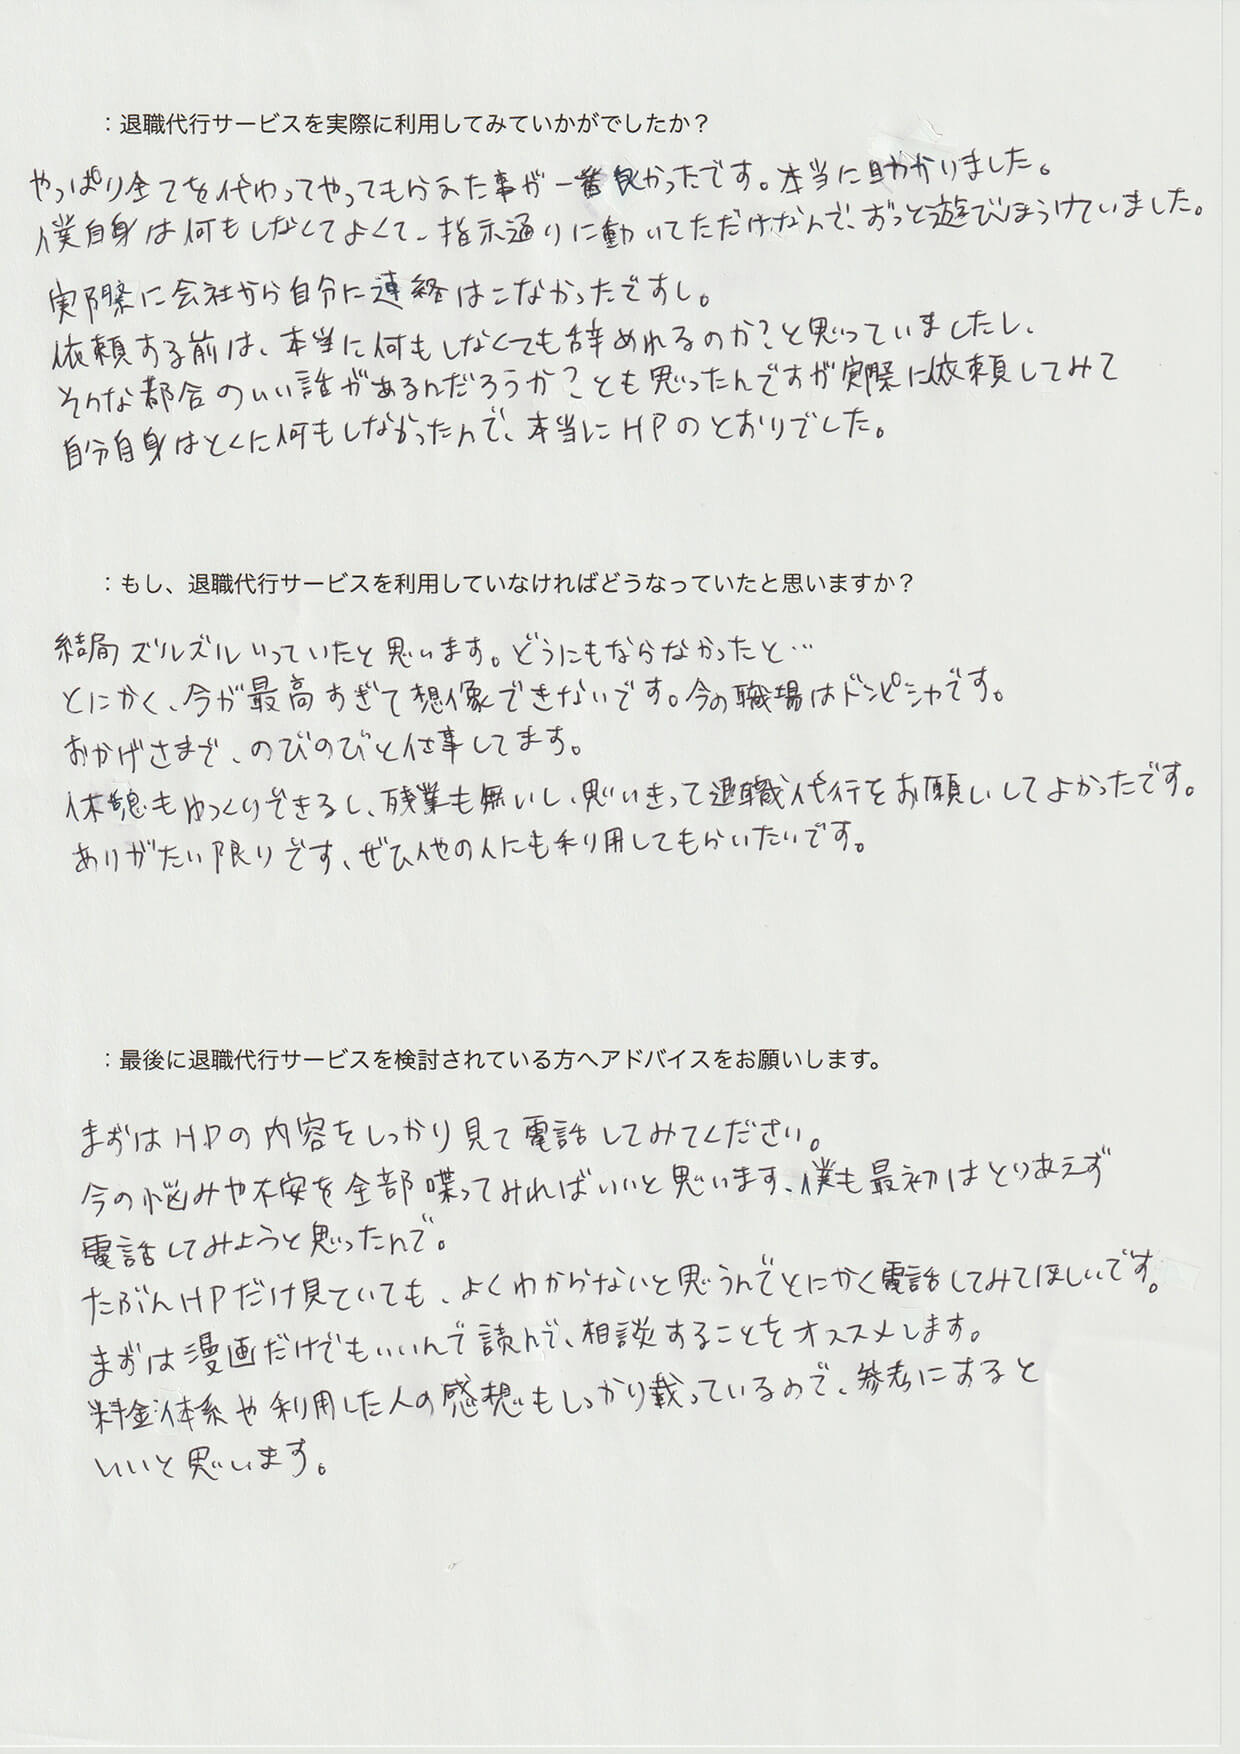 ：退職代行サービスを実際に利用してみていかがでしたか？
やっぱり全てを代わってやってもらえた事が一番良かったです。本当に助かりました。
僕自身は何もしなくてよくて、指示通りに動いてただけなんで、ずっと遊びほうけていました。
実際に会社から自分に連絡はこなかったですし。
依頼する前は、本当に何もしなくても辞めれるのか？と思っていましたし、
そんな都合のいい話があるんだろうか？とも思ったんですが実際に依頼してみて
自分自身はとくに何もしなかったんで、本当にHPのとおりでした。
：もし、退職代行サービスを利用していなければどうなっていたと思いますか？
結局ズルズルいっていたと思います。どうにもならなかったと…
とにかく、今が最高すぎて想像できないです。今の職場はドンピシャです。
おかげさまで、のびのびと仕事してます。
休憩もゆっくりできるし、残業も無いし、思いきって退職代行をお願いしてよかったです。
ありがたい限りです、ぜひ他の人にも利用してもらいたいです。
：最後に退職代行サービスを検討されている方へアドバイスをお願いします。
まずはHPの内容をしっかり見て電話してみてください。
今の悩みや不安を全部喋ってみればいいと思います、僕も最初はとりあえず
電話してみようと思ったんで。
たぶんHPだけ見ていても、よくわからないと思うんでとにかく電話してみてほしいです。
まずは漫画だけでもいいんで読んで、相談することをオススメします。
料金体系や利用した人の感想もしっかり載っているので、参考にすると
いいと思います。